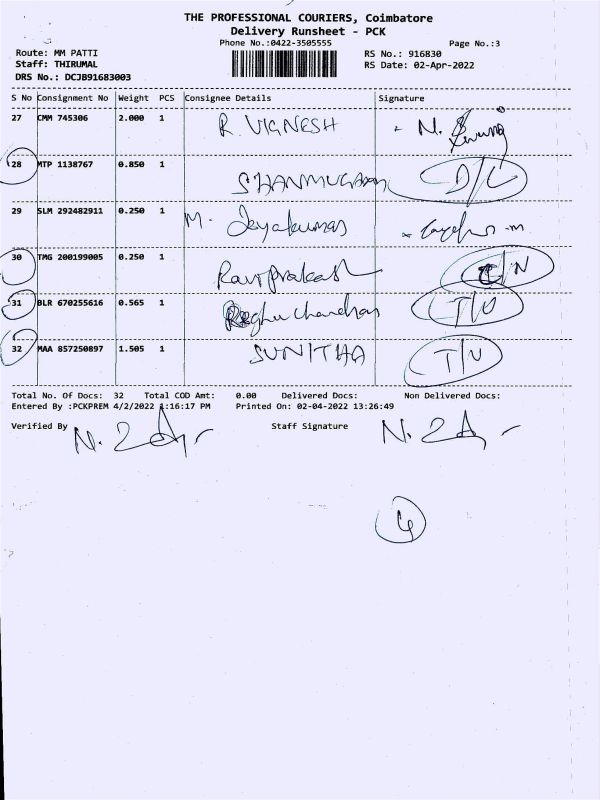 THE PROFESSIONAL COURIERS, Coimbatore
Delivery Runsheet - PCK
Phone No.:0422-3505555
Page No.:3
Route: MM PATTI
RS No.: 916830
Staff: THIRUMAL
RS Date: 02-Apr-2022
DRS No.: DCJB91683003
S No Consignment No Weight PCS Consignee Details Signature
27 CMM 745306 2.000 1 R. VIGNESH N.
28 MTP 1138767 0.850 1 SHANMUGAM D/L
29 SLM 292482911 0.250 1 M. Jeyakumar
30 TMG 200199005 0.250 1 Raviprakash
31 BLR 670255616 0.565 1 Raghu chandran T/U
32 MAA 857250897 1.505 1 SUNITHA T/U
Total No. Of Docs: 32 Total COD Amt: 0.00 Delivered Docs: Non Delivered Docs:
Entered By :PCKPREM 4/2/2022 1:16:17 PM Printed On: 02-04-2022 13:26:49
Verified By Staff Signature